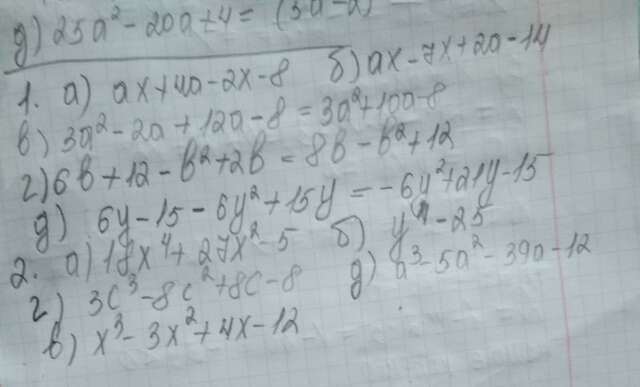 д) 25a² - 20a + 4 = (5a - 2)
1. а) ax + 4a - 2x - 8 б) ax - 7x + 2a - 14
в) 3a² - 2a + 12a - 8 = 3a² + 10a - 8
г) 6b + 12 - b² + 2b = 8b - b² + 12
д) 6y - 15 - 6y² + 15y = -6y² + 21y - 15
2. а) 18x⁴ + 27x² - 5 б) y⁴ - 25
г) 3c³ - 8c² + 8c - 8 д) a³ - 5a² - 39a - 12
в) x³ - 3x² + 4x - 12